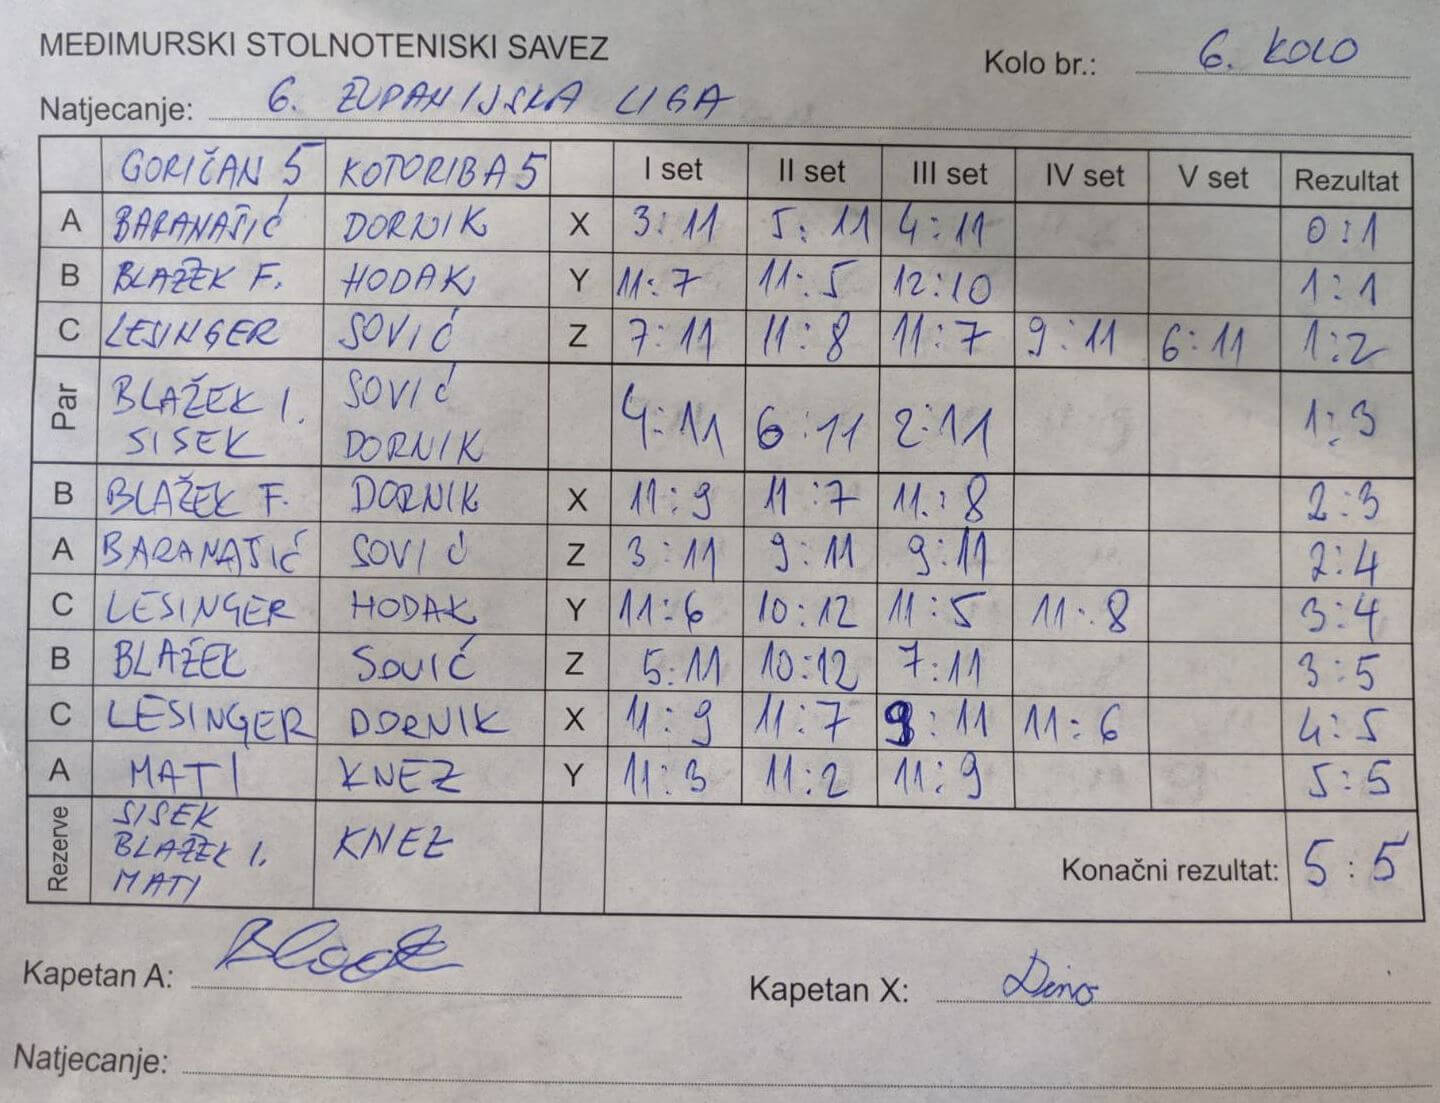 MEĐIMURSKI STOLNOTENISKI SAVEZ
Kolo br.: 6. KOLO
Natjecanje: 6. ŽUPANIJSKA LIGA
GORIČAN 5 KOTORIBA 5 I set II set III set IV set V set Rezultat
A BARANAŠIĆ DORNIK X 3:11 5:11 4:11 0:1
B BLAŽEK F. HODAK Y 11:7 11:5 12:10 1:1
C LESINGER SOVIĆ Z 7:11 11:8 11:7 9:11 6:11 1:2
Par BLAŽEK I. SOVIĆ 4:11 6:11 2:11 1:3
SISEK DORNIK
B BLAŽEK F. DORNIK X 11:9 11:7 11:8 2:3
A BARANAŠIĆ SOVIĆ Z 3:11 9:11 9:11 2:4
C LESINGER HODAK Y 11:6 10:12 11:5 11:8 3:4
B BLAŽEK SOVIĆ Z 5:11 10:12 7:11 3:5
C LESINGER DORNIK X 11:9 11:7 9:11 11:6 4:5
A MATI KNEZ Y 11:3 11:2 11:9 5:5
Rezerve SISEK
BLAŽEK I. KNEZ Konačni rezultat: 5:5
MATI
Kapetan A:
Kapetan X: Dino
Natjecanje: